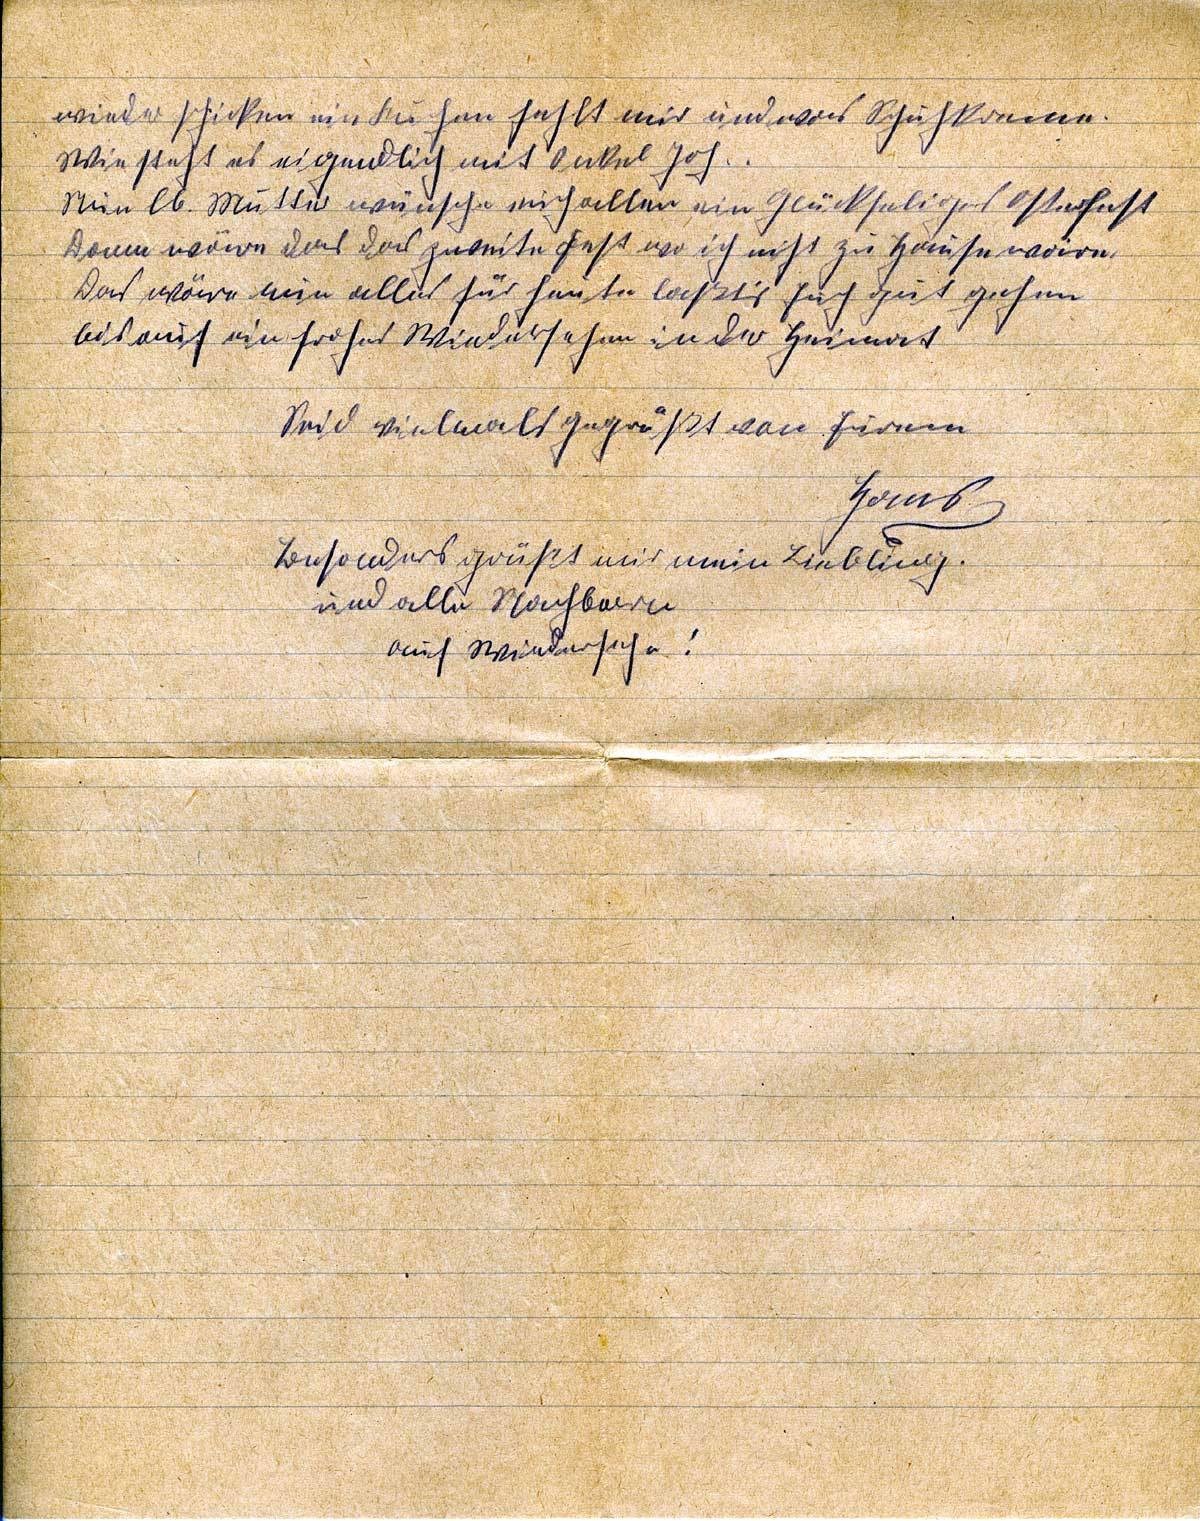 wieder schicken ein Kuchen fehlt mir und was Schuhkreme.
Wie steht es eigendlich mit Onkel Joh..
Nun lb. Mutter wünsche euch allen ein Glückseliges Osterfest
Dann wäre das das zweite Fest wo ich nicht zu Hause wäre.
Das wäre nun alles für heute laßt's Euch gut gehen
bis auf ein frohes Wiedersehen in der Heimat
Seid vielmals gegrüßt von Eurem
Hans
Besonders grüßt mir mein Liebling.
und alle Nachbarn
auf Wiedersehn !